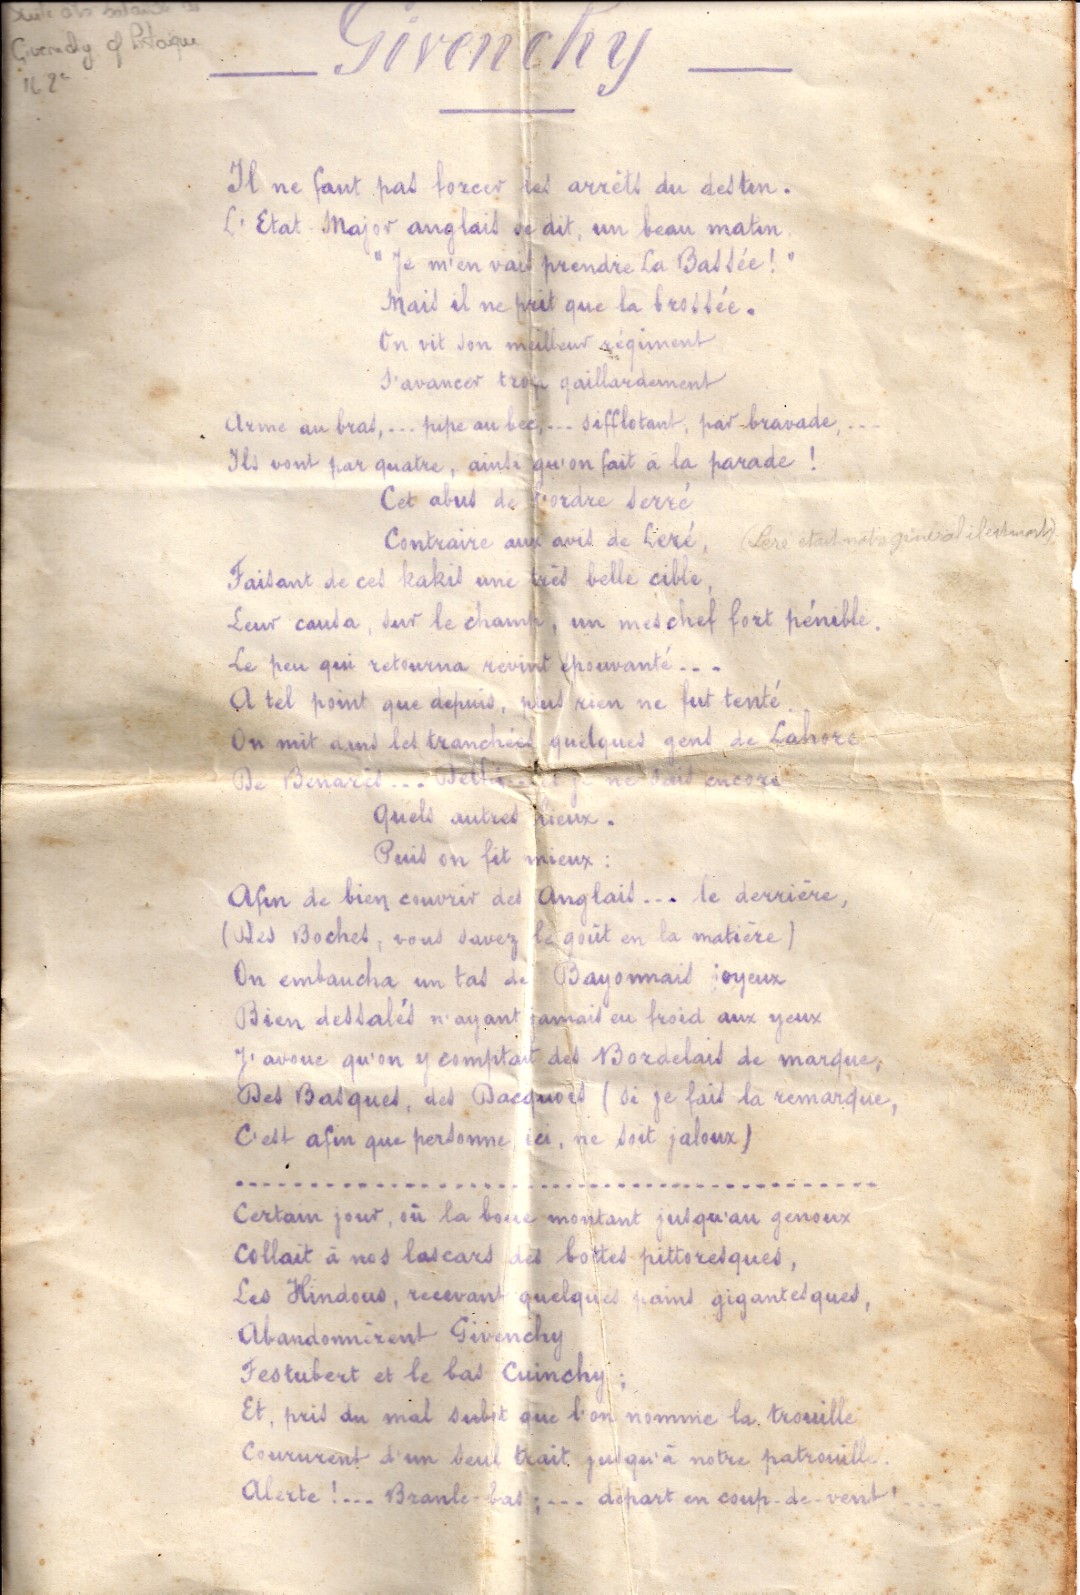 Givenchy of Pitoque
Givenchy
Il ne faut pas forcer les arrêts du destin.
L'Etat-Major anglais se dit, un beau matin.
"Je m'en vais prendre La Bassée!"
Mais il ne prit que la brossée.
On vit son meilleur régiment
S'avancer trop gaillardement
Arme au bras,... pipe au bec,... sifflotant, par-bravade,...
Ils vont par quatre, ainsi qu'on fait à la parade!
Cet abus de l'ordre serré
Contraire aux avis de Leré, (Leré était notre général il est mort).
Faisant de ces kakis une très belle cible,
Leur causa, sur le champ, un meschef fort pénible.
Le peu qui retourna revint épouvanté...
A tel point que depuis, plus rien ne fut tenté.
On mit dans les tranchées quelques gens de Lahore
De Benarès... Delhi... je ne sais encore
Quels autres lieux.
Puis on fit mieux:
Afin de bien couvrir des Anglais... le derrière,
(Des Boches, vous savez le goût en la matière)
On embaucha un tas de Bayonnais joyeux
Bien dessalés n'ayant jamais eu froid aux yeux
J'avoue qu'on y comptait des Bordelais de marque,
Des Basques, des Dacquois (si je fais la remarque,
C'est afin que personne, ici, ne soit jaloux)
..........................................
Certain jour, où la boue montant jusqu'au genoux
Collait à nos lascars des bottes pittoresques,
Les Hindous, recevant quelques pains gigantesques,
Abandonnèrent Givenchy
Festubert et le bas Cuinchy;
Et, pris du mal subit que l'on nomme la trouille
Coururent d'un seul trait jusqu'à notre patrouille.
Alerte!... Branle-bas;... départ en coup-de-vent!...